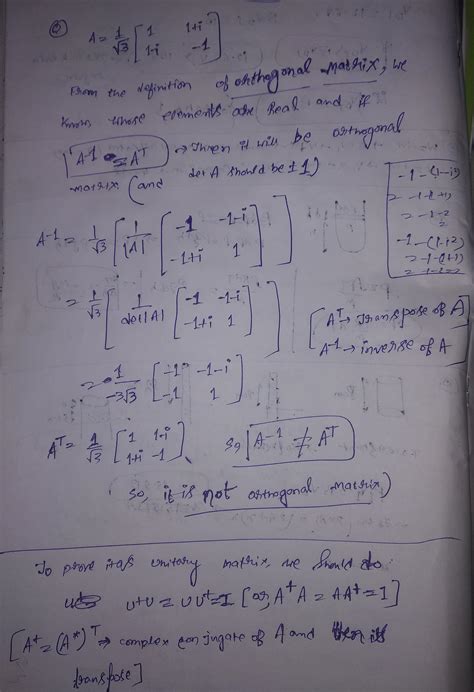 ② A = 1/√3 [1 1+i
1-i -1]
From the definition of orthogonal matrix, we
know whose elements are (real and if
A-1 = AT → Then it will be orthogonal
matrix (and det A should be ±1)
-1-(1-i²)
= -1-(1+1)
= -1-2
-1-(1+2)
= -1-(1+1)
= -1-1=2
A-1 = 1/√3 [1/|A| [-1 -1-i
-1+i 1]]
= 1/√3 [1/det|A| [-1 -1-i
-1+i 1]]
[AT → Transpose of A
A-1 → inverse of A
= 1/-3√3 [-1 -1-i
-1 1]
AT = 1/√3 [1 1-i
1+i -1]
So, A-1 ≠ AT
So, it is not orthogonal matrix)
To prove it as unitary matrix, we should do
U+U = UU+=I [or, A+A = AA+=I]
[A+ = (A*)T → complex conjugate of A and
transpose]